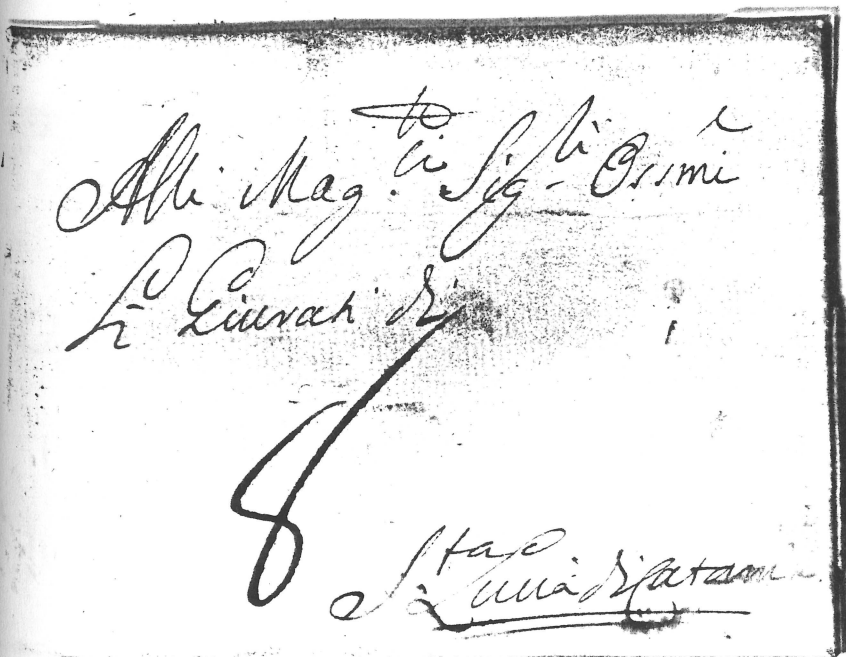 Alli Mag.ci Sig.li Ossmi
Li Giurati di
8
S.ta Lucia di Catania